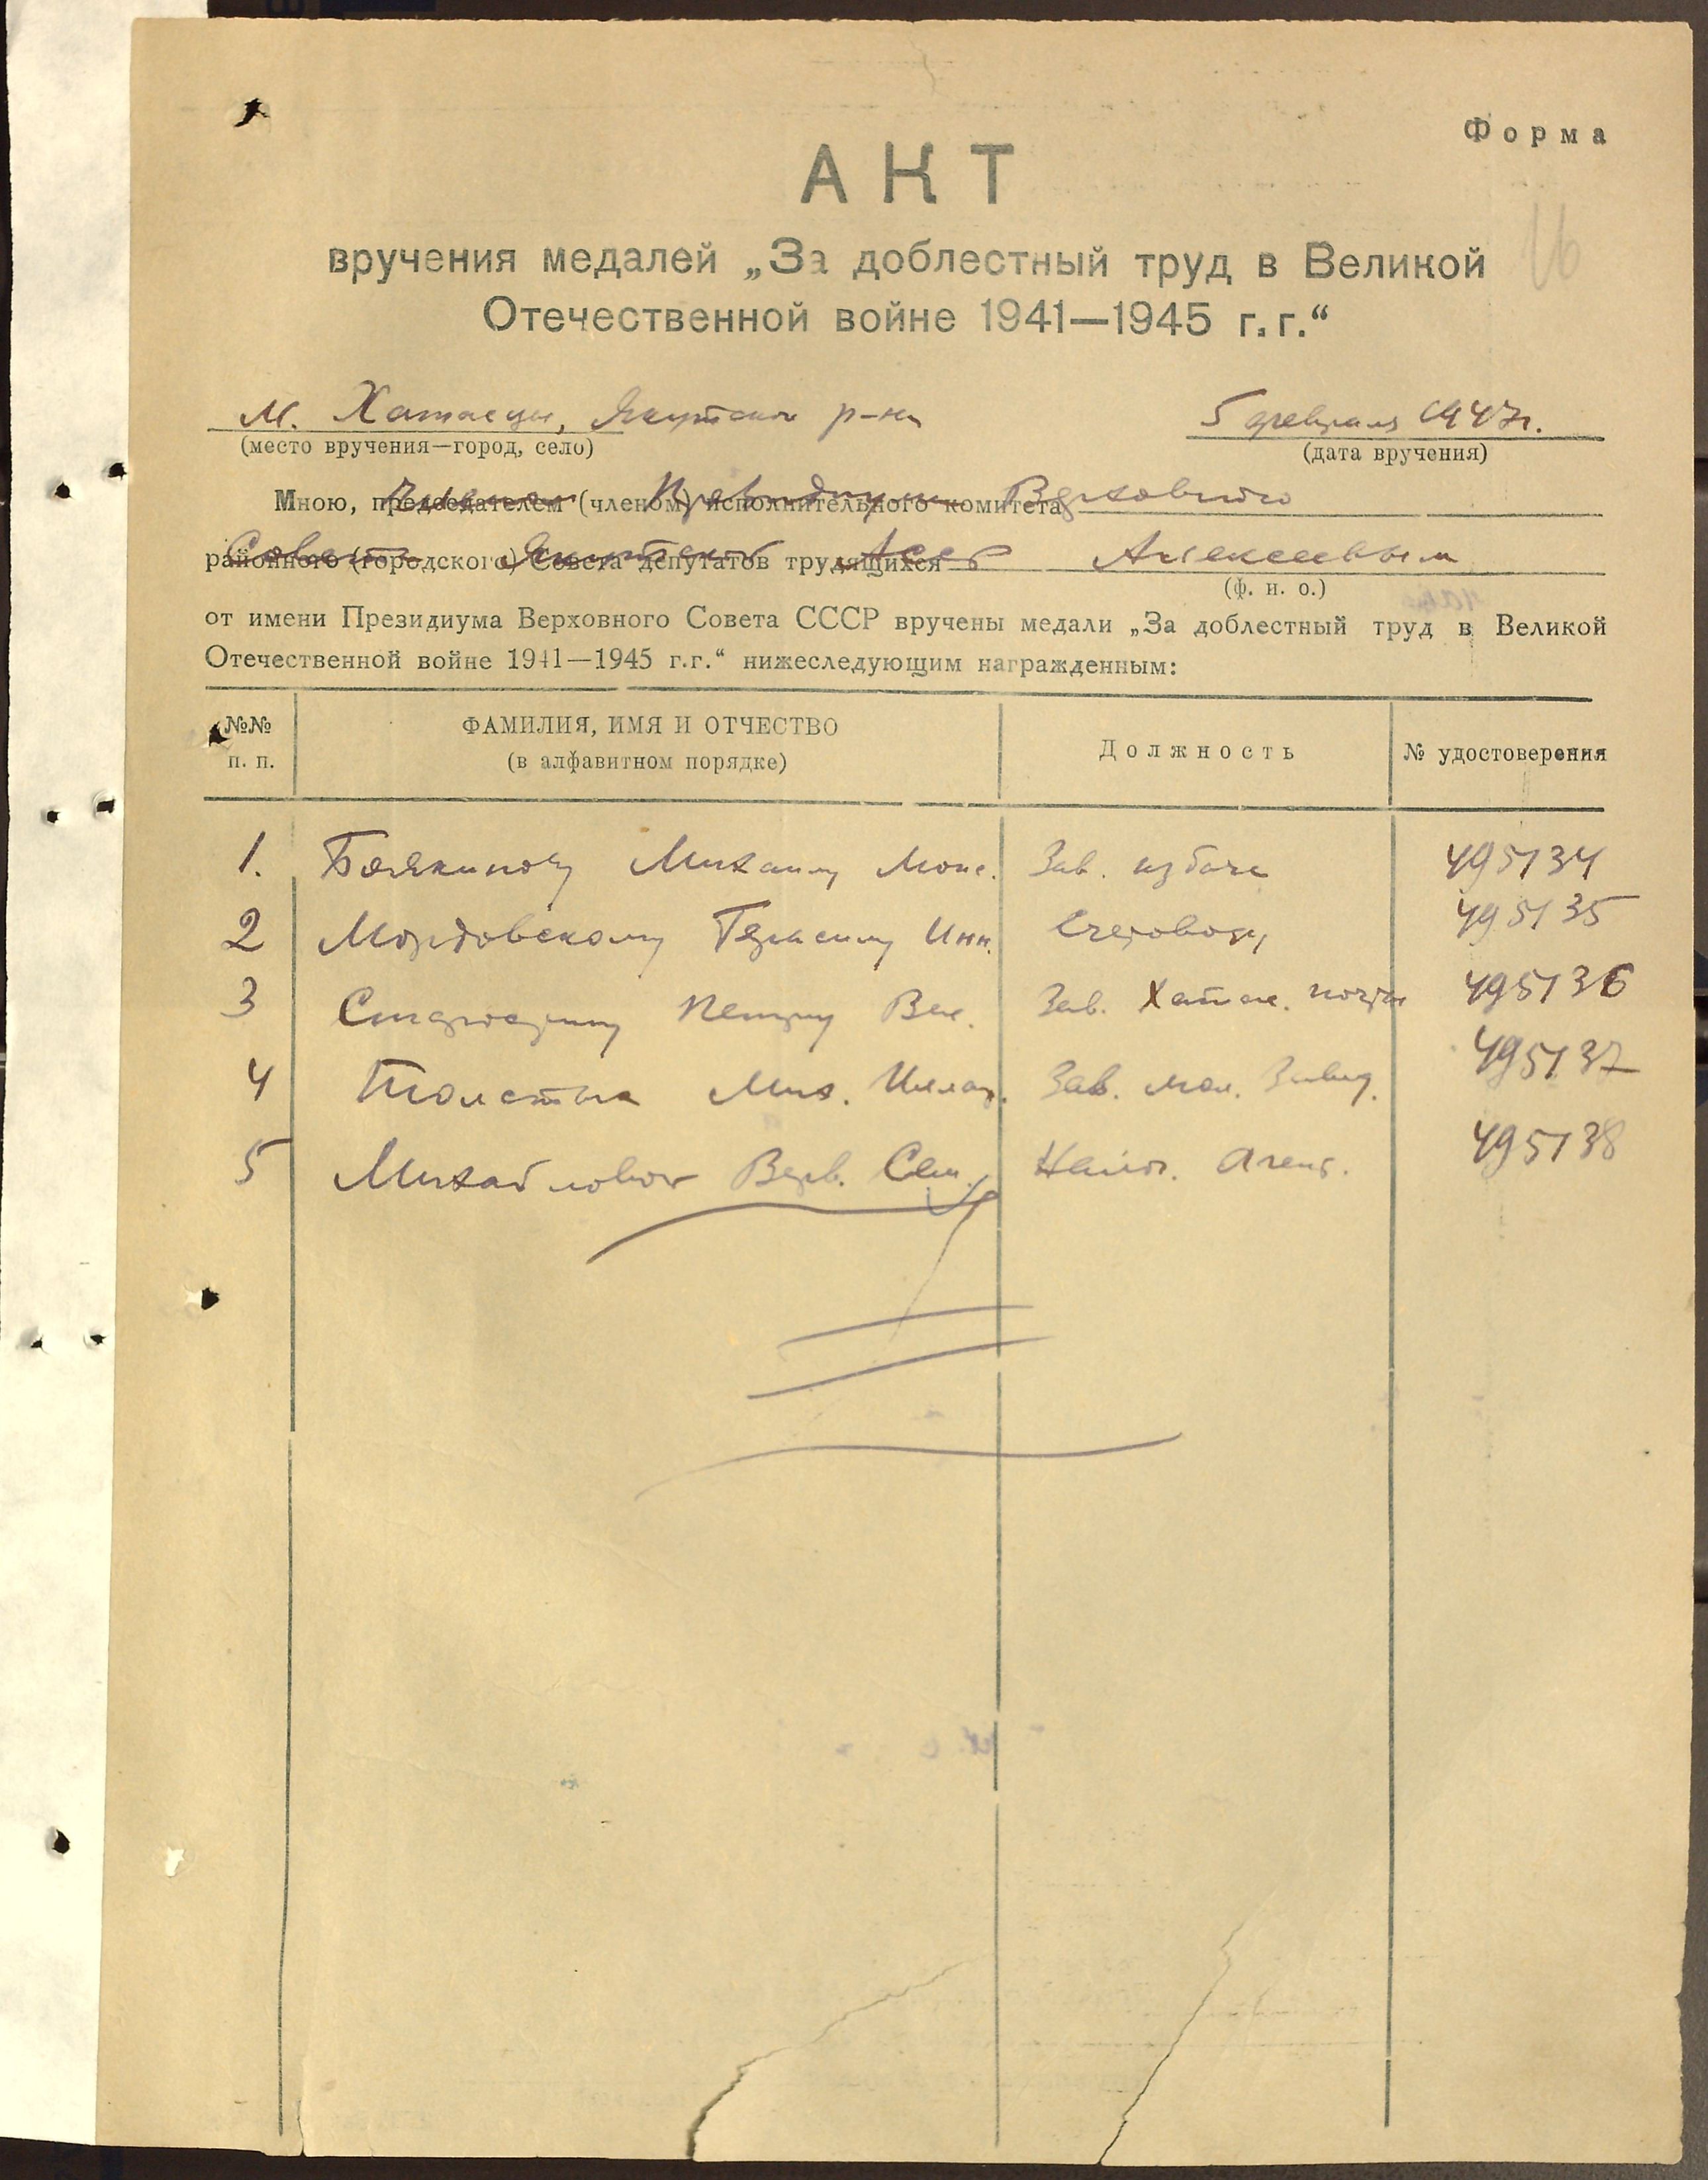 Форма
АКТ
16
вручения медалей „За доблестный труд в Великой
Отечественной войне 1941—1945 г.г.“
М. Хатассы, Якутского р-на
5 февраля 1947г.
(место вручения—город, село)
(дата вручения)
Членом Президиума Верховного
Мною, председателем (членом) исполнительного комитета
Совета Якутской АССР Алексеевым
районного (городского) Совета депутатов трудящихся
(ф. и. о.)
от имени Президиума Верховного Совета СССР вручены медали „За доблестный труд в Великой
Отечественной войне 1941—1945 г.г.“ нижеследующим награжденным:
№№ п. п. ФАМИЛИЯ, ИМЯ И ОТЧЕСТВО (в алфавитном порядке) Должность № удостоверения
1. Михаилу Зав. 495134
2 Мордовскому Герасиму Инн. Счетоводу 495135
3 Петру Вас. Зав. Хатас. почты 495136
4 Мих. Зав. мол. завод. 495137
5 Михайловой Варв. Сем. Налог. агент. 495138